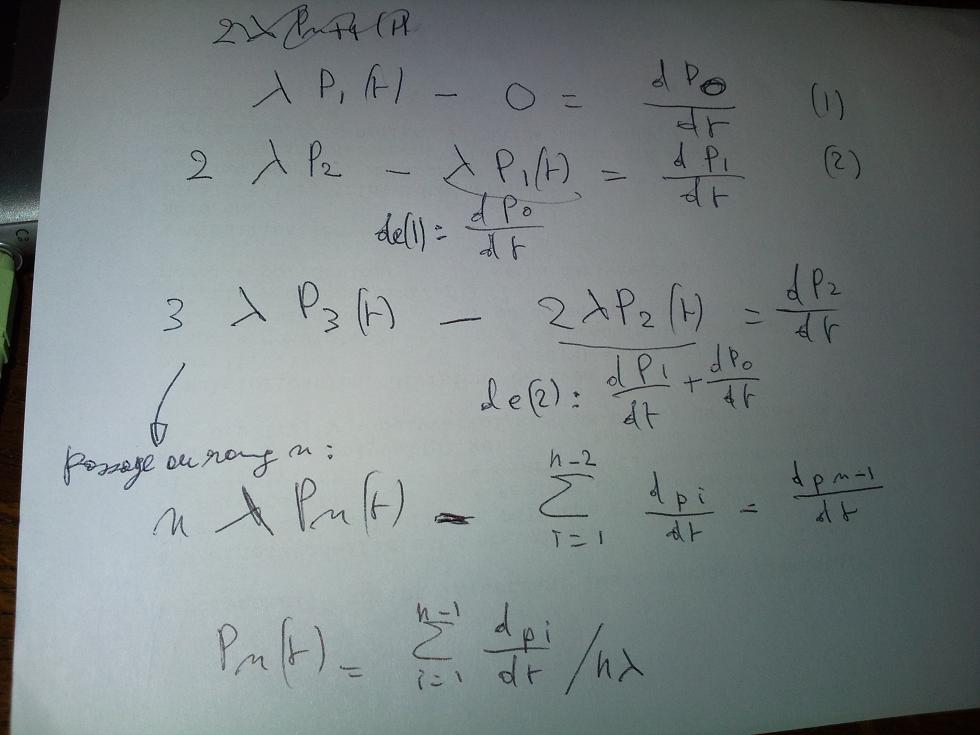 2λ Pn+1(t)
λ P₁(t) - 0 = dP₀/dt (1)
2 λ P₂ - λ P₁(t) = dP₁/dt (2)
de(1): dP₀/dt
3 λ P₃(t) - 2λP₂(t) = dP₂/dt
de(2): dP₁/dt + dP₀/dt
passage au rang n :
n λ Pn(t) - ∑_{i=1}^{n-2} dpi/dt = dpn-1/dt
Pn(t) = ∑_{i=1}^{n-1} dpi/dt / nλ